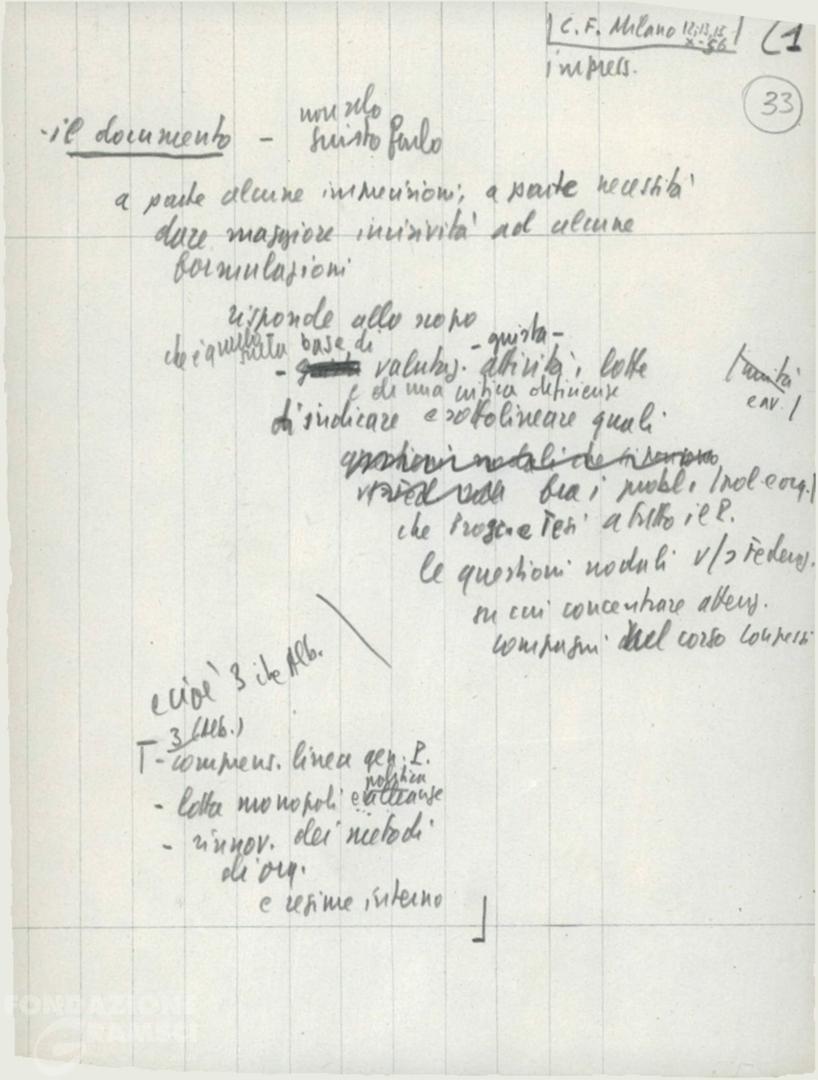 C. F. Milano 12, 13, 15 X-56 (1
impress.
33
- il documento - non solo
giusto farlo
a parte alcune imprecisioni; a parte necessità
dare maggiore incisività ad alcune
formulazioni
risponde allo scopo
che è quello sulla base di - giusta -
- valutaz. attività, lotte
e di una critica deficienze
di indicare e sottolineare quali
questioni nodali che
tra i probl. (pol e org.)
che Progr. e Tesi a tutto il P.
le questioni nodali v/s Federaz.
su cui concentrare attenz.
compagni nel corso congressi
e cioè 3 che Alb.
3 (Alb.)
- comprens. linea gen. P.
- lotta monopoli e politica alleanze
- rinnov. dei metodi
di org.
e regime interno
FONDAZIONE
GRAMSCI